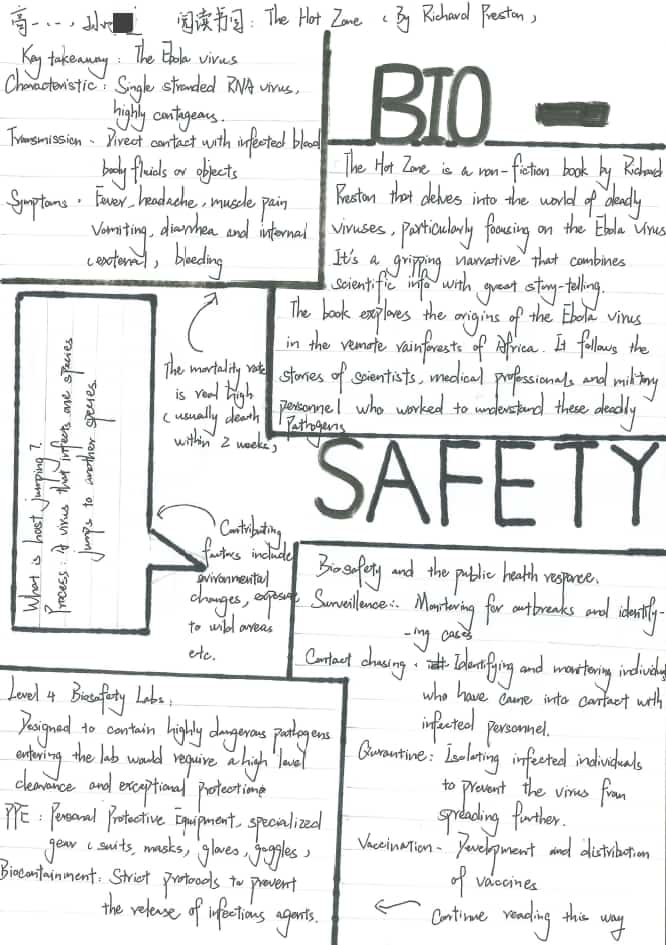 阅读书目: The Hot Zone (By Richard Preston)
Key takeaway: The Ebola virus
Characteristic: Single stranded RNA virus,
highly contageous.
Transmission - Direct contact with infected blood
body fluids or objects
Symptoms - Fever, headache, muscle pain
Vomiting, diarrhea and internal
(external) bleeding
BIO -
The Hot Zone is a non-fiction book by Richard
Preston that delves into the world of deadly
viruses, particularly focusing on the Ebola Virus
It's a gripping narrative that combines
scientific info with great story-telling.
The book explores the origins of the Ebola virus
in the remote rainforests of Africa. It follows the
stories of scientists, medical professionals and military
personnel who worked to understand these deadly
Pathogens
The mortality rate
is real high
(usually death
within 2 weeks)
What is host jumping?
Process: A virus that infects one species
jumps to another species.
SAFETY
Contributing
factors include
environmental
changes, exposure
to wild areas
etc.
Biosafety and the public health response.
Surveillence: Monitoring for outbreaks and identify-
-ing cases
Contact chasing - Identifying and monitoring individuals
who have came into contact with
infected personnel.
Qurantine: Isolating infected individuals
to prevent the virus from
spreading further.
Vaccination - Development and distribution
of vaccines
Continue reading this way
Level 4 Biosafety Labs:
Designed to contain highly dangerous pathogens
entering the lab would require a high level
clearance and exceptional protections
PPE: Personal Protective Equipment, specialized
gear (suits, masks, gloves, goggles)
Biocontainment: Strict protocols to prevent
the release of infectious agents.